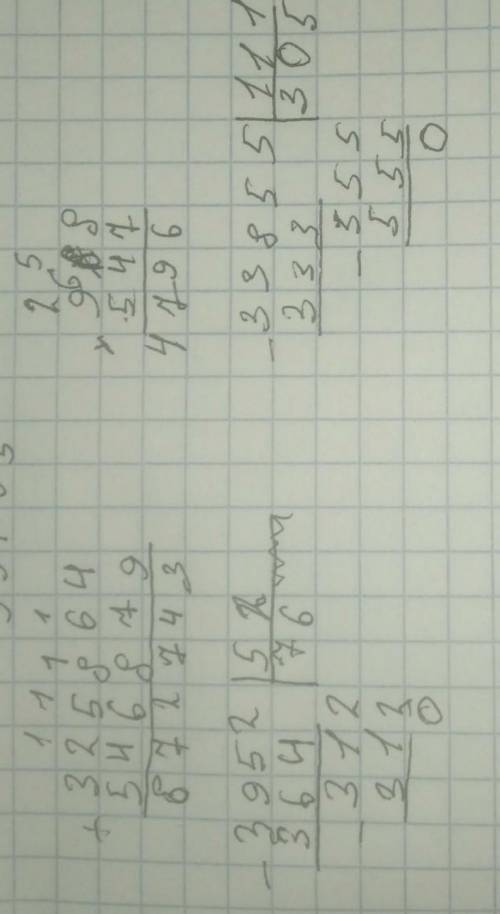 1 1 1 1
+ 325864
546879
872743
2 5
× 968
547
4796
- 3952 | 52
364 | 76
- 312
312
0
- 33855 | 111
333 | 305
- 555
555
0